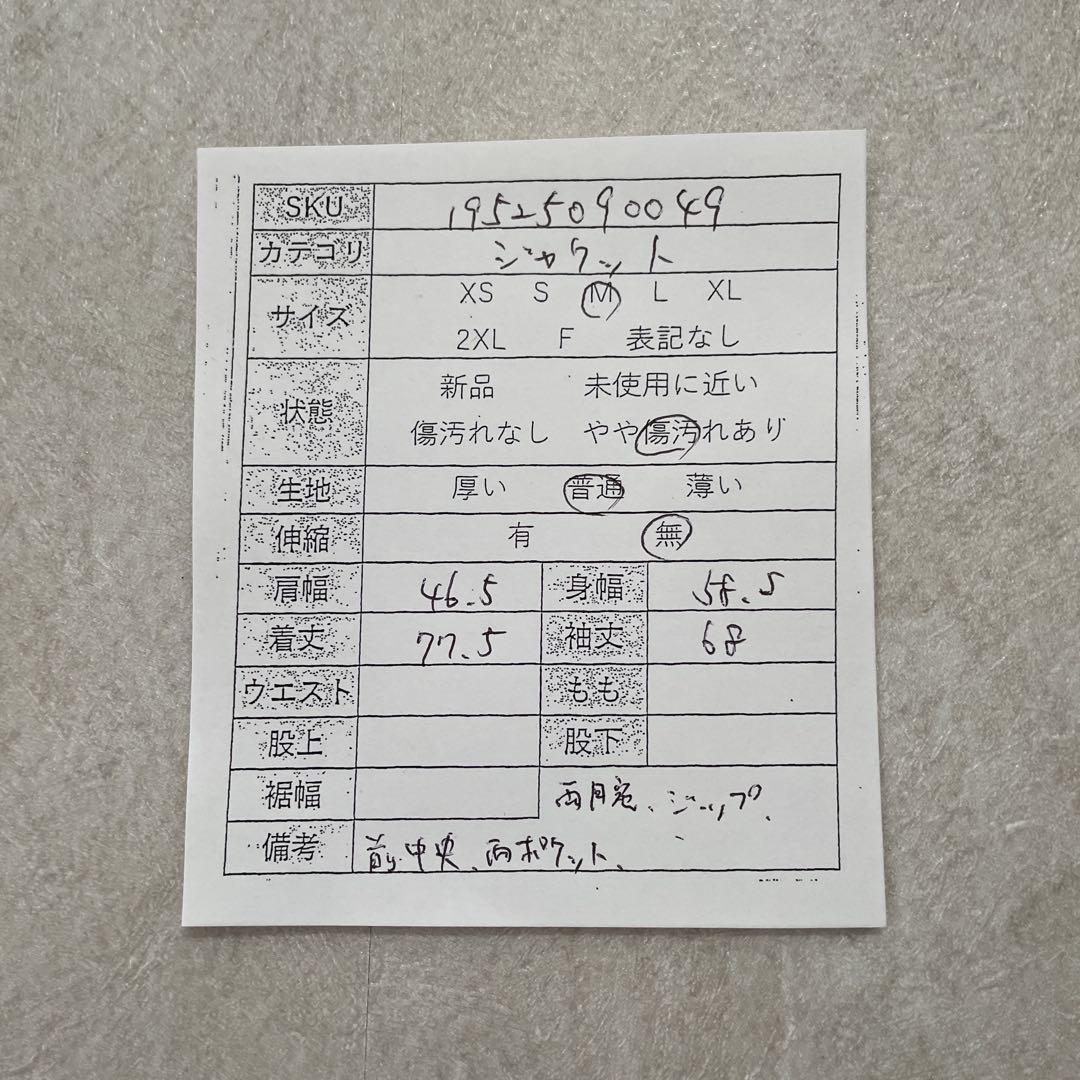 SKU 19525090049
カテゴリ ジャケット
サイズ XS S M L XL
2XL F 表記なし
状態 新品 未使用に近い
傷汚れなし やや傷汚れあり
生地 厚い 普通 薄い
伸縮 有 無
肩幅 46.5 身幅 58.5
着丈 77.5 袖丈 68
ウエスト もも
股上 股下
裾幅 両 、ジップ、
備考 前中央、両ポケット、